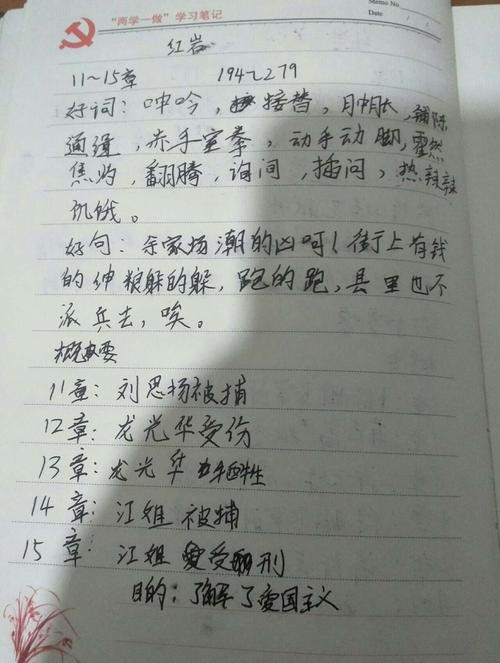 "两学一做"学习笔记
Memo No.
Date / /
红岩
11~15章 194~279
好词：呻吟，接替，月朗，铺陈
通缉，赤手空拳，动手动脚，霍然
焦灼，翻腾，询问，插问，热辣辣
饥饿。
好句：余家场潮的凶呵！街上有钱
的伸粮躲的躲，跑的跑，县里也不
派兵去，唉。
概要
11章：刘思扬被捕
12章：龙光华受伤
13章：龙光华牺牲
14章：江姐被捕
15章：江姐受刑
目的：了解了爱国主义